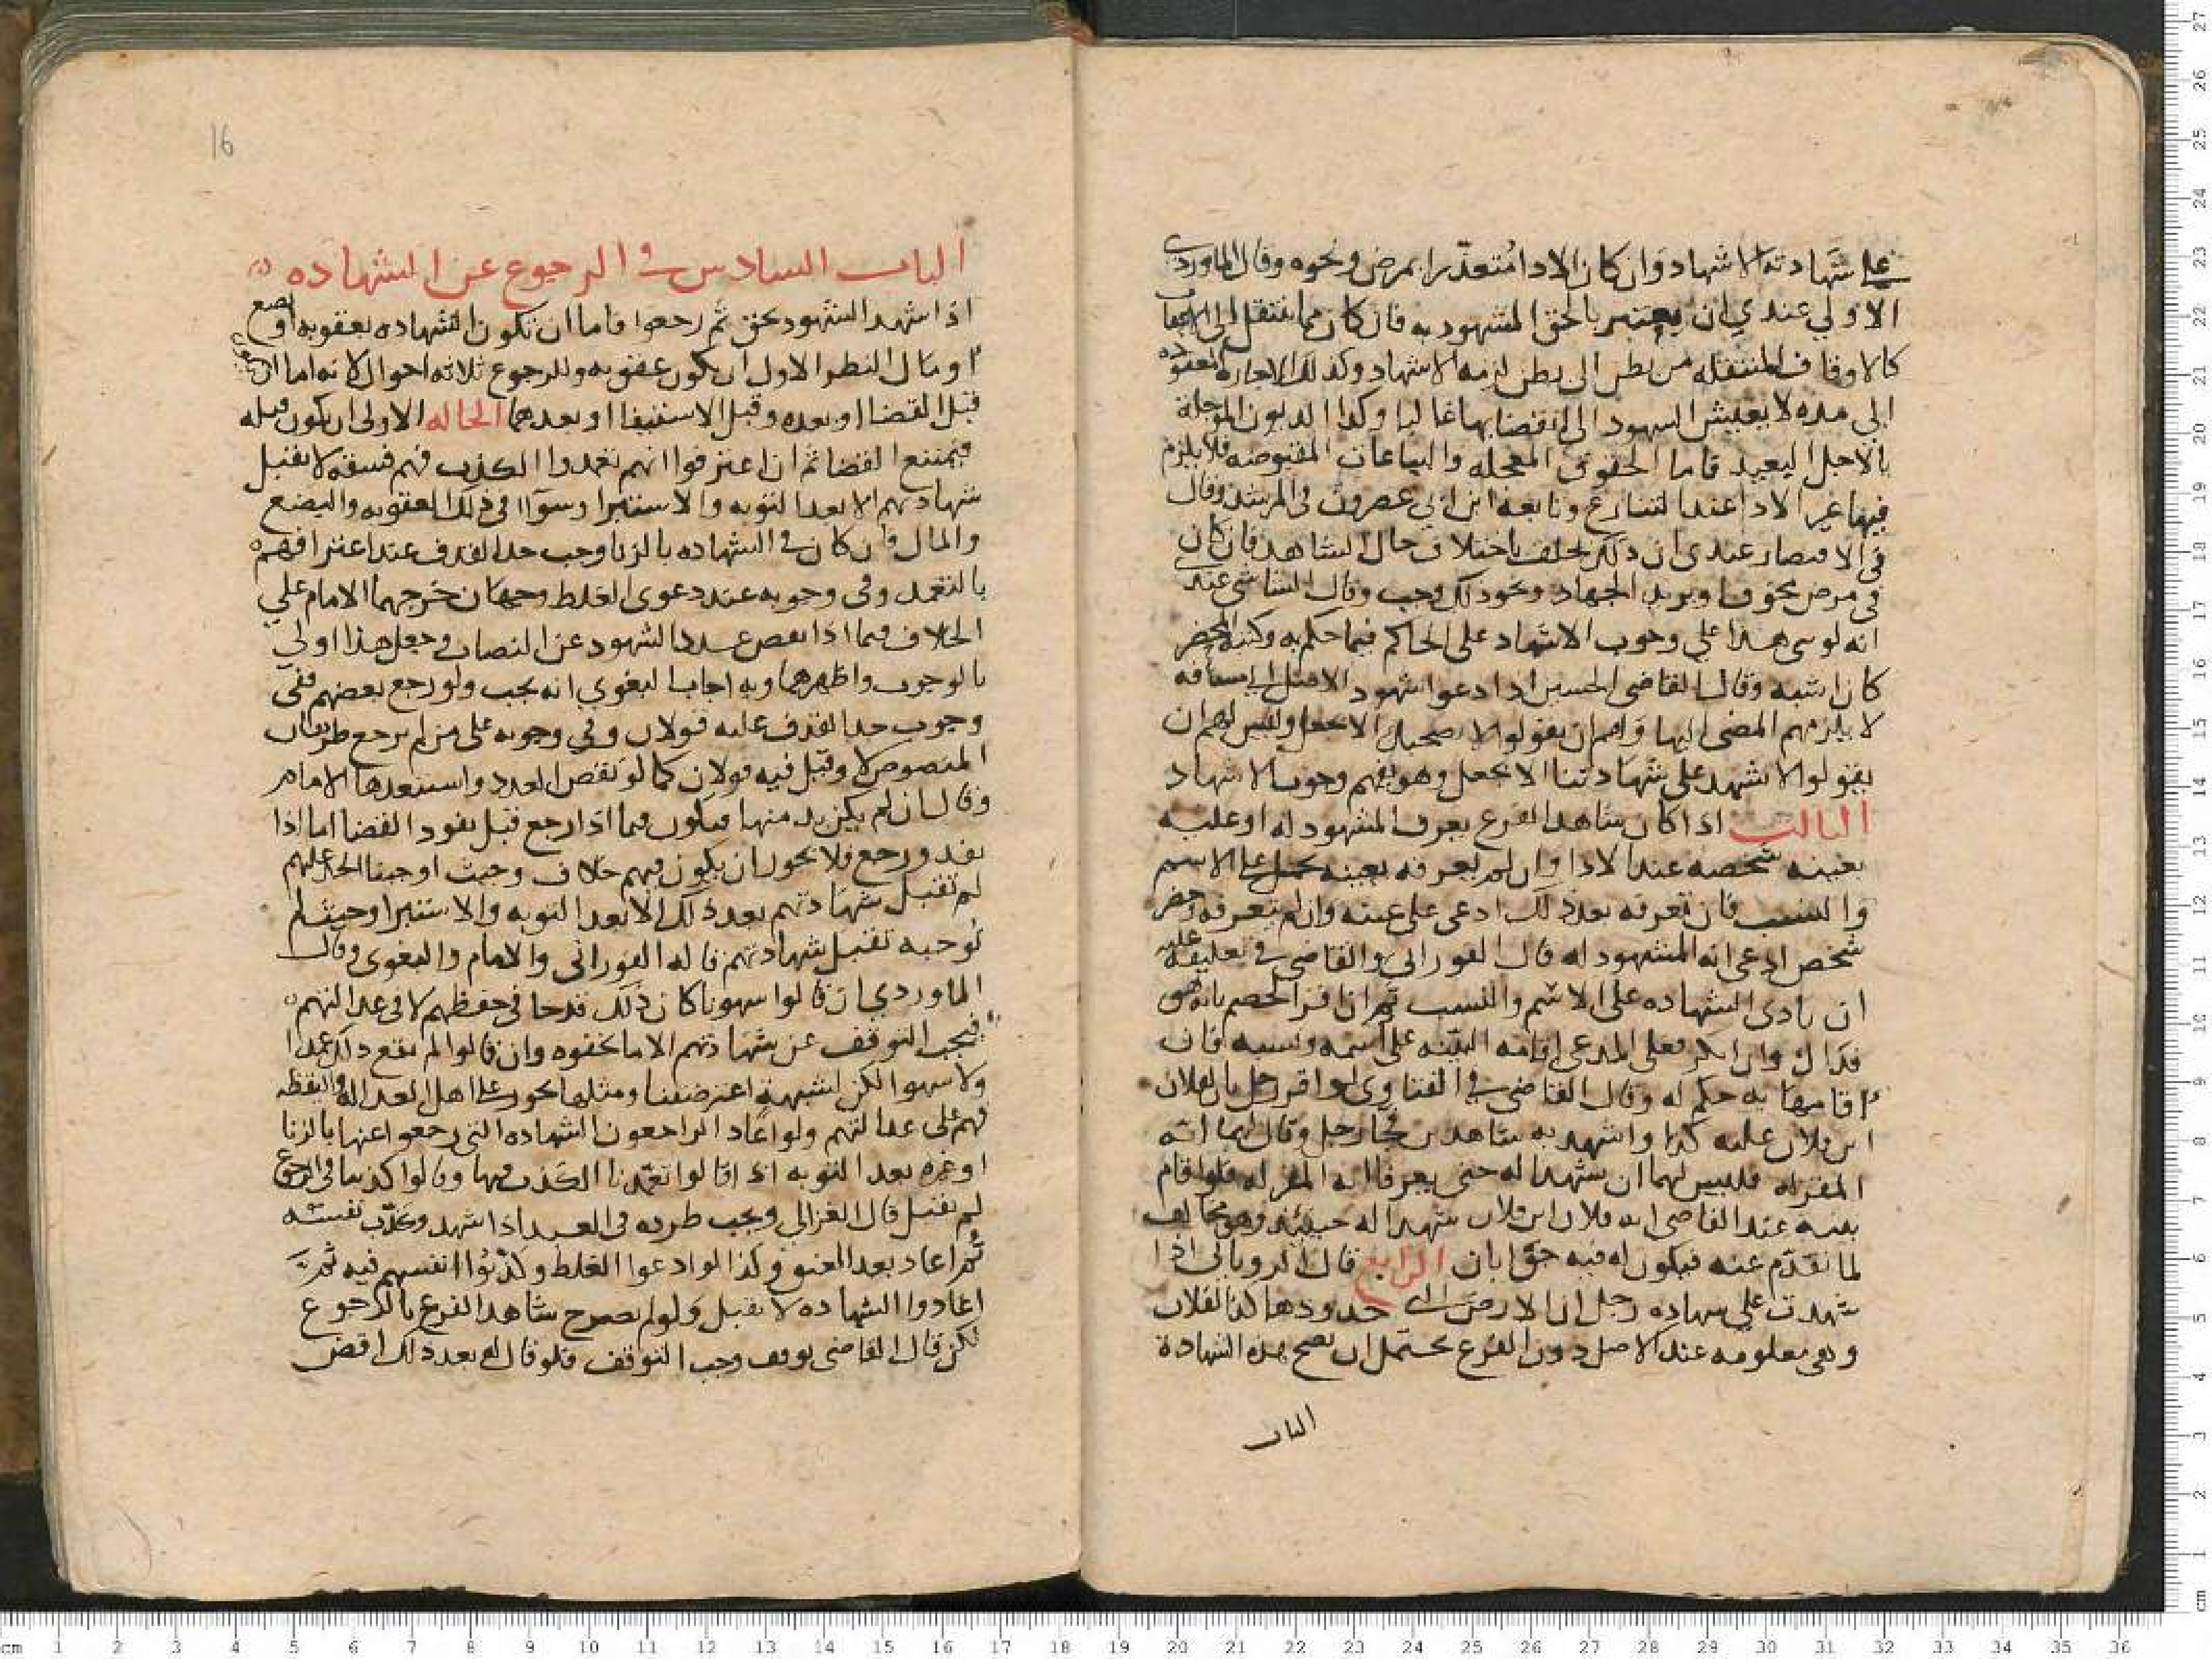 على شهادته الاشهاد وان كان الادا متعذرا بمرض ونحوه وقال الماوردي
الاولي عندي ان يعتبر بالحق المشهود به فان كان مما ينتقل الى الاعقاب
كالاوقاف المنتقله من بطن الى بطن لزمه الاشهاد وكذلك الاجاره المعقوده
الى مده لا يعيش الشهود الى انقضايها غالبا وكذا الديون المؤجلة
بالاجل البعيد فاما الحقوق المعجله والبياعات المقبوضه فلا يلزم
فيها غير الادا عند التنازع وتابعه ابن ابي عصرون في المرشد وقال
في الانتصار عندي ان ذلك يختلف باختلاف حال الشاهد فان كان
في مرض مخوف او يريد الجهاد ونحو ذلك وجب وقال الشاشي عندي
انه لو بنى هذا علي وجوب الاشهاد على الحاكم فيما حكم به وكتبه المحضر
كان اشبه وقال القاضي الحسين اذا دعوا شهود الاصل الى مسافه
لا يلزمهم المضي اليها ولهم ان يقولوا لا نصحبك الا بجعل وليس لهم ان
يقولوا لا نشهد على شهادتنا الا بجعل وهو يفهم وجوب الاشهاد
الثالث اذا كان شاهد الفرع يعرف المشهود له او عليه
بعينه شخصه عند الادا وان لم يعرفه بعينه تحمل على الاسم
والنسب فان تعرفه بعد ذلك ادعى على عينه وان لم يتعرفه وحضر
شخص ادعى انه المشهود له قال الفوراني والقاضي في تعليقه عليه
ان يادى الشهاده على الاسم والنسب ثم ان اقر الخصم بانه هو
فذاك وان انكر فعلى المدعي اقامه البينه على اسمه ونسبه فان
اقامها به حكم له وقال القاضي في الفتاوى لو اقر رجل بان لفلان
ابن فلان عليه كذا واشهد به شاهدين فجا رجل وقال لهما انه
المقر له فليس لهما ان يشهدا له حتى يعرفا انه المقر له فلو اقام
بينه عند القاضي انه فلان ابن فلان شهدا له حينئذ وهو مخالف
لما تقدم عنه فيكون له فيه جوابان الرابع قال الروياني اذا
شهدت على شهاده رجل ان الارض التي حدودها كذا لفلان
وهي معلومه عند الاصل دون الفرع يحتمل ان تصح هذه الشهادة
الباب
16
الباب السادس في الرجوع عن الشهاده
اذا شهد الشهود بحق ثم رجعوا فاما ان تكون الشهاده بعقوبه او بضع
او مال النظر الاول ان يكون عقوبه وللرجوع ثلاثه احوال لانه اما ان
قبل القضا او بعده وقبل الاستيفا او بعدهما الحاله الاولى ان يكون قبله
فيمتنع القضا ثم ان اعترفوا انهم تعمدوا الكذب فهم فسقه لا تقبل
شهادتهم الا بعد التوبه والاستبرا وسوآ في ذلك العقوبه والبضع
والمال وان كان في الشهاده بالزنا وجب حد القذف عند اعترافهم
بالتعمد وفي وجوبه عند دعوى الغلط وجهان خرجهما الامام علي
الخلاف فيما اذا نقص عدد الشهود عن النصاب وجعل هذا اولي
بالوجوب واظهرهما وبه اجاب البغوي انه يجب ولو رجع بعضهم ففي
وجوب حد القذف عليه قولان وفي وجوبه على من لم يرجع طريقان
المنصوص لا وقيل فيه قولان كما لو نقص العدد واستبعدها الامام
وقال ان لم يكن بد منها فيكون فيما اذا رجع قبل نفود القضا اما اذا
نفد ورجع فلا يجوز ان يكون فيهم خلاف وحيث اوجبنا الحد عليهم
لم تقبل شهادتهم بعد ذلك الا بعد التوبه والاستبرا وحيث لم
نوجبه تقبل شهادتهم قاله الفوراني والامام والبغوي وقال
الماوردي ان قالوا سهونا كان ذلك قدحا في حفظهم لا في عدالتهم
فيجب التوقف عن شهادتهم الا ما تحققوه وان قالوا لم يقع ذلك عمدا
ولا سهوا لكن لشبهة اعترضتنا ومثلها يجوز على اهل العداله واليقظه
فهم على عدالتهم ولو اعاد الراجعون الشهاده التي رجعوا عنها بالزنا
او غيره بعد التوبه اذا قالوا تعمدنا الكذب فيها وقالوا كذبنا في الرجوع
لم تقبل قال الغزالي ويجب طرده في العبد اذا شهد وكذب نفسه
ثم اعاد بعد العتق وكذا لو ادعوا الغلط وكذبوا انفسهم فيه ثم
اعادوا الشهاده لا تقبل ولو لم يصرح شاهد الفرع بالرجوع
لكن قال للقاضي توقف وجب التوقف فلو قال له بعد ذلك اقض